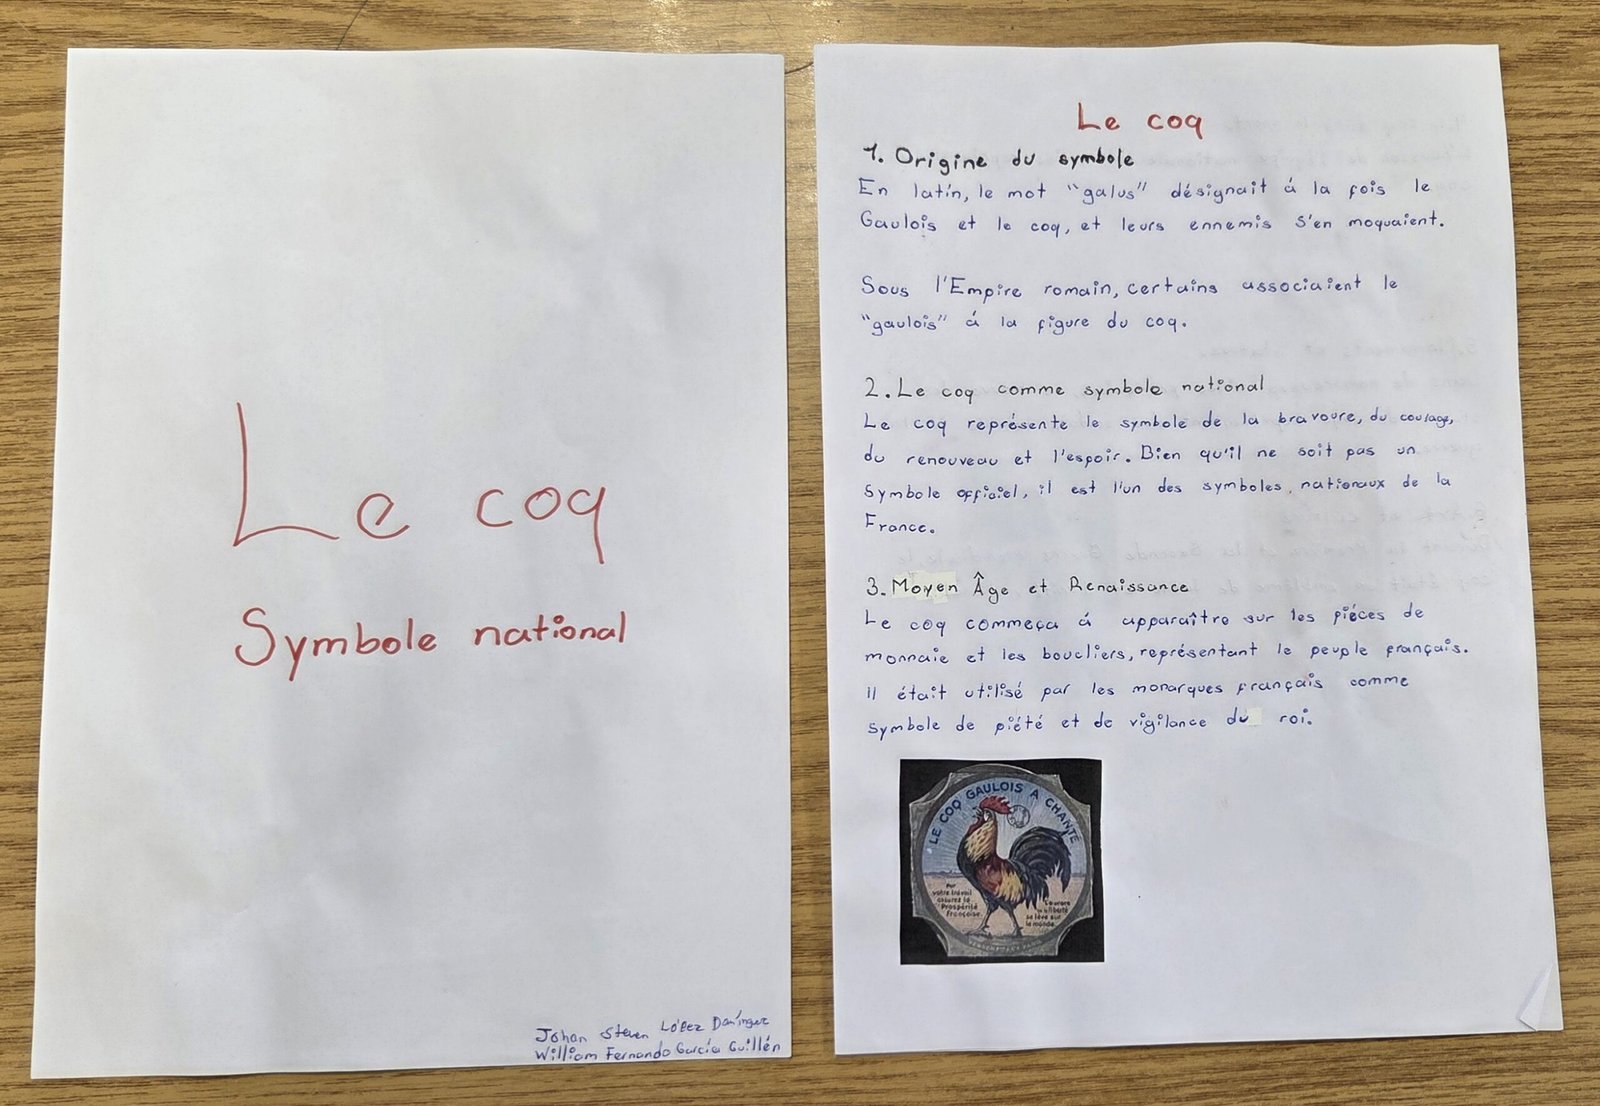 Le coq
Symbole national
Johan Steven López
William Fernando García Guillén
Le coq
1. Origine du symbole
En latín, le mot "galus" désignait á la fois le
Gaulois et le coq, et leurs ennemis s'en moquaient.
Sous l'Empire romain, certains associaient le
"gaulois" á la figure du coq.
2. Le coq comme symbole national
Le coq représente le symbole de la bravoure, du courage,
du renouveau et l'espoir. Bien qu'il ne soit pas un
symbole officiel, il est l'un des symboles nationaux de la
France.
3. Moyen Âge et Renaissance
Le coq commeça á apparaître sur les piéces de
monnaie et les boucliers, représentant le peuple français.
Il était utilisé par les monarques français comme
symbole de piété et de vigilance du roi.
LE COQ GAULOIS A CHANTÉ
Par
votre travail
assurez la
Prospérité
Française.
L'aurore
de la liberté
se lève sur
le monde.